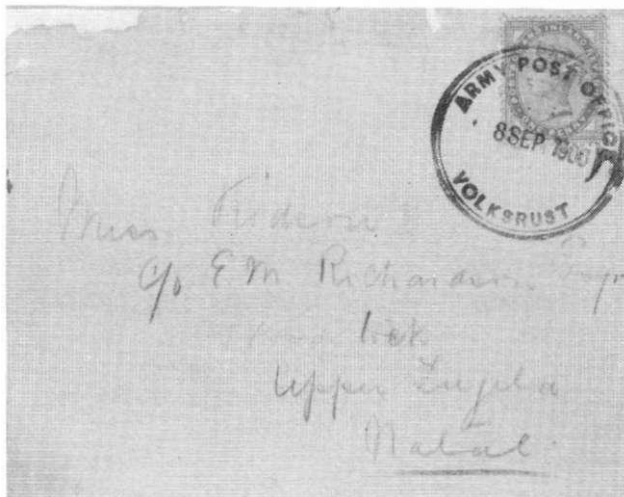 ARMY POST OFFICE
8 SEP 1900
VOLKSRUST
Miss
c/o E M Richardson Esqr
Upper Tugela
Natal